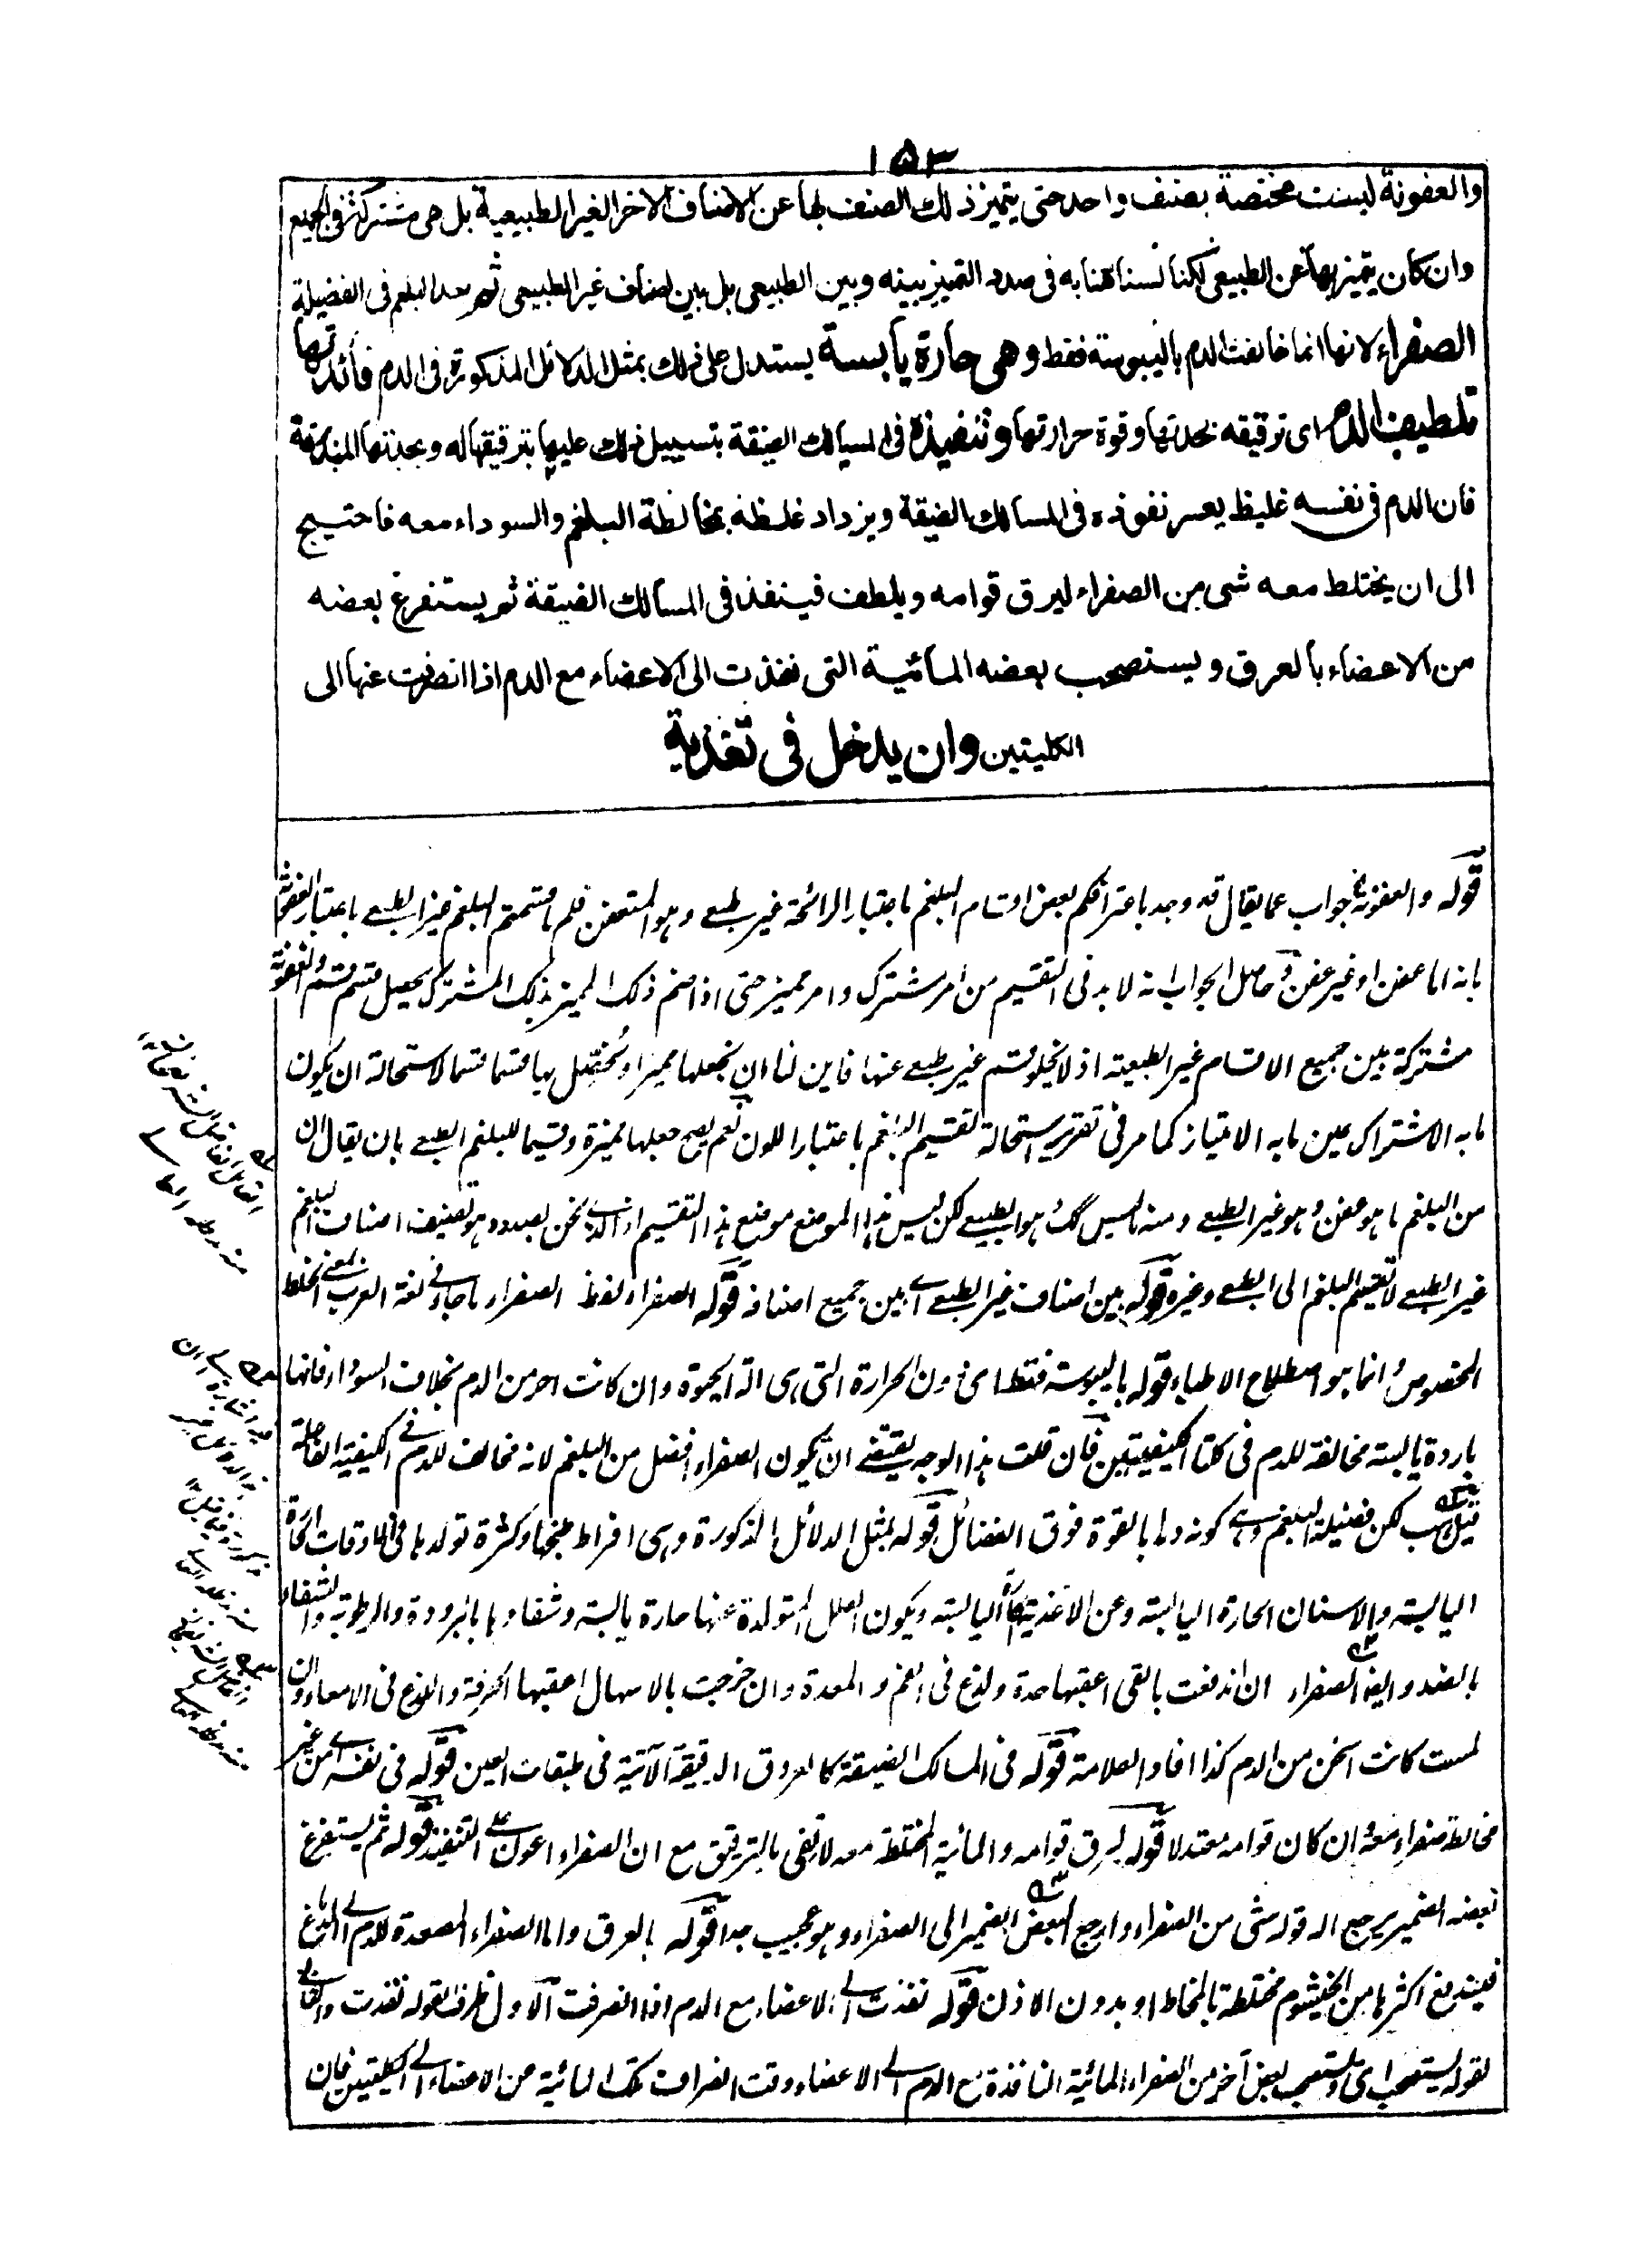 ١٥٣
والعفونة ليست مختصة بصنف واحد حتى يتميز ذلك الصنف بها عن الاصناف الاخر الغير الطبيعية بل هى مشتركة فى الجميع
وان كان يتميز بها عن الطبيعى لكنا لسنا ههنا به فى صدد التمييز بينه وبين الطبيعى بل بين اصناف غير الطبيعى ثم بعد البلغم فى الفضيلة
الصفراء لانها انما خالفت الدم باليبوسة فقط وهى حارة يابسة يستدل على ذلك بمثل الدلائل المذكورة فى الدم فائدتها
تلطيف الدم اى ترقيقه بحدتها وقوة حرارتها وتنفيذه فى المسالك الضيقة بتسييل ذلك عليها بترقيقها له وبحدتها
فان الدم فى نفسه غليظ يعسر نفوذه فى المسالك الضيقة ويزداد غلظه بمخالطة البلغم والسوداء معه فاحتيج
الى ان يختلط معه شى من الصفراء ليرق قوامه ويلطف فينفذ فى المسالك الضيقة ثم يستفرغ بعضه
من الاعضاء بالعرق ويستصحب بعضه المائية التى نفذت الى الاعضاء مع الدم اذا انصرفت عنها الى
الكليتين وان يدخل فى تغذية
قوله والعفونة جواب عما يقال قد وجد باعترافكم بعض اقسام البلغم باعتبار الرائحة غير طبعى وهو المتعفن فلم ما قسمتم البلغم غير الطبعى باعتبار
بانه اما عفن او غير عفن وحاصل الجواب انه لا بد فى التقسيم من امر مشترك وامر مميز حتى اذا ضم ذلك المميز بذلك المشترك يحصل قسم قسم والعفونة
مشتركة بين جميع الاقسام غير الطبيعية اذ لا يخلو قسم غير طبعى عنها فاين لنا ان نجعلها مميزا ويحصل بها قسما قسما لاستحالة ان يكون
ما به الاشتراك عين ما به الامتياز كما مر فى تقرير استحالة تقسيم البلغم باعتبار اللون نعم يصح جعلها مميزة وقسيما للبلغم الطبعى بان يقال ان
من البلغم ما هو عفن وهو غير الطبعى ومنه ما ليس كك هو الطبيعى لكن ليس هذا الموضع موضع هذا التقسيم اذ الذى نحن بصدده هو تصنيف اصناف البلغم
غير الطبعى لا تقسيم البلغم الى الطبعى وغيره قوله بين اصناف غير الطبعى اى بين جميع اصنافه قوله الصفراء لفظ الصفراء ما جاء فى لغة العرب بمعنى الخلط
المخصوص وانما هو اصطلاح الاطباء قوله باليبوسة فقط اى دون الحرارة التى هى آلة الحيوة وان كانت احر من الدم بخلاف السوداء فانها
باردة يابسة مخالفة للدم فى كلتا الكيفيتين فان قلت هذا الوجه يقتضى ان يكون الصفراء افضل من البلغم لانه مخالف للدم فى الكيفية الفاعلة
لكن فضيلة البلغم وهى كونه دما بالقوة فوق الفضائل قوله بمثل الدلائل المذكورة وهى افراط طبخها وكثرة تولدها فى الاوقات الحارة
اليابسة والاسنان الحارة اليابسة وعن الاغذية الحارة اليابسة ويكون العلل المتولدة عنها حارة يابسة وشفاؤها بالبرودة والرطوبة والشفاء
بالضد وايضا الصفراء ان اندفعت بالقى اعقبها حدة ولذع فى الفم والمعدة وان خرجت بالاسهال اعقبها الحرقة واللذع فى الامعاء وان
لمست كانت اسخن من الدم كذا افاد العلامة قوله فى المسالك الضيقة كالعروق الدقيقة الآتية فى طبقات العين قوله فى نفسه اى من غير
مخالطة صفراء معه وان كان قوامه معتدلا قوله ليرق قوامه والمائية المختلطة معه لا تفى بالترقيق مع ان الصفراء اعون على التنفيذ قوله ثم يستفرغ
بعضه الضمير يرجع الى قوله شى من الصفراء وارجع البعض الضمير الى الصفراء وهو عجيب جدا قوله بالعرق واما الصفراء المصعدة للدم الى الدماغ
فيندفع اكثرها من الخيشوم مختلطة بالمخاط او بدون الاذن قوله نفذت الى الاعضاء مع الدم اذا انصرفت الاول ظرف لقوله نفذت والثانى
لقوله يستصحب اى ويستصحب بعض آخر من الصفراء المائية النافذة مع الدم الى الاعضاء وقت انصراف تلك المائية من الاعضاء الى الكليتين فان